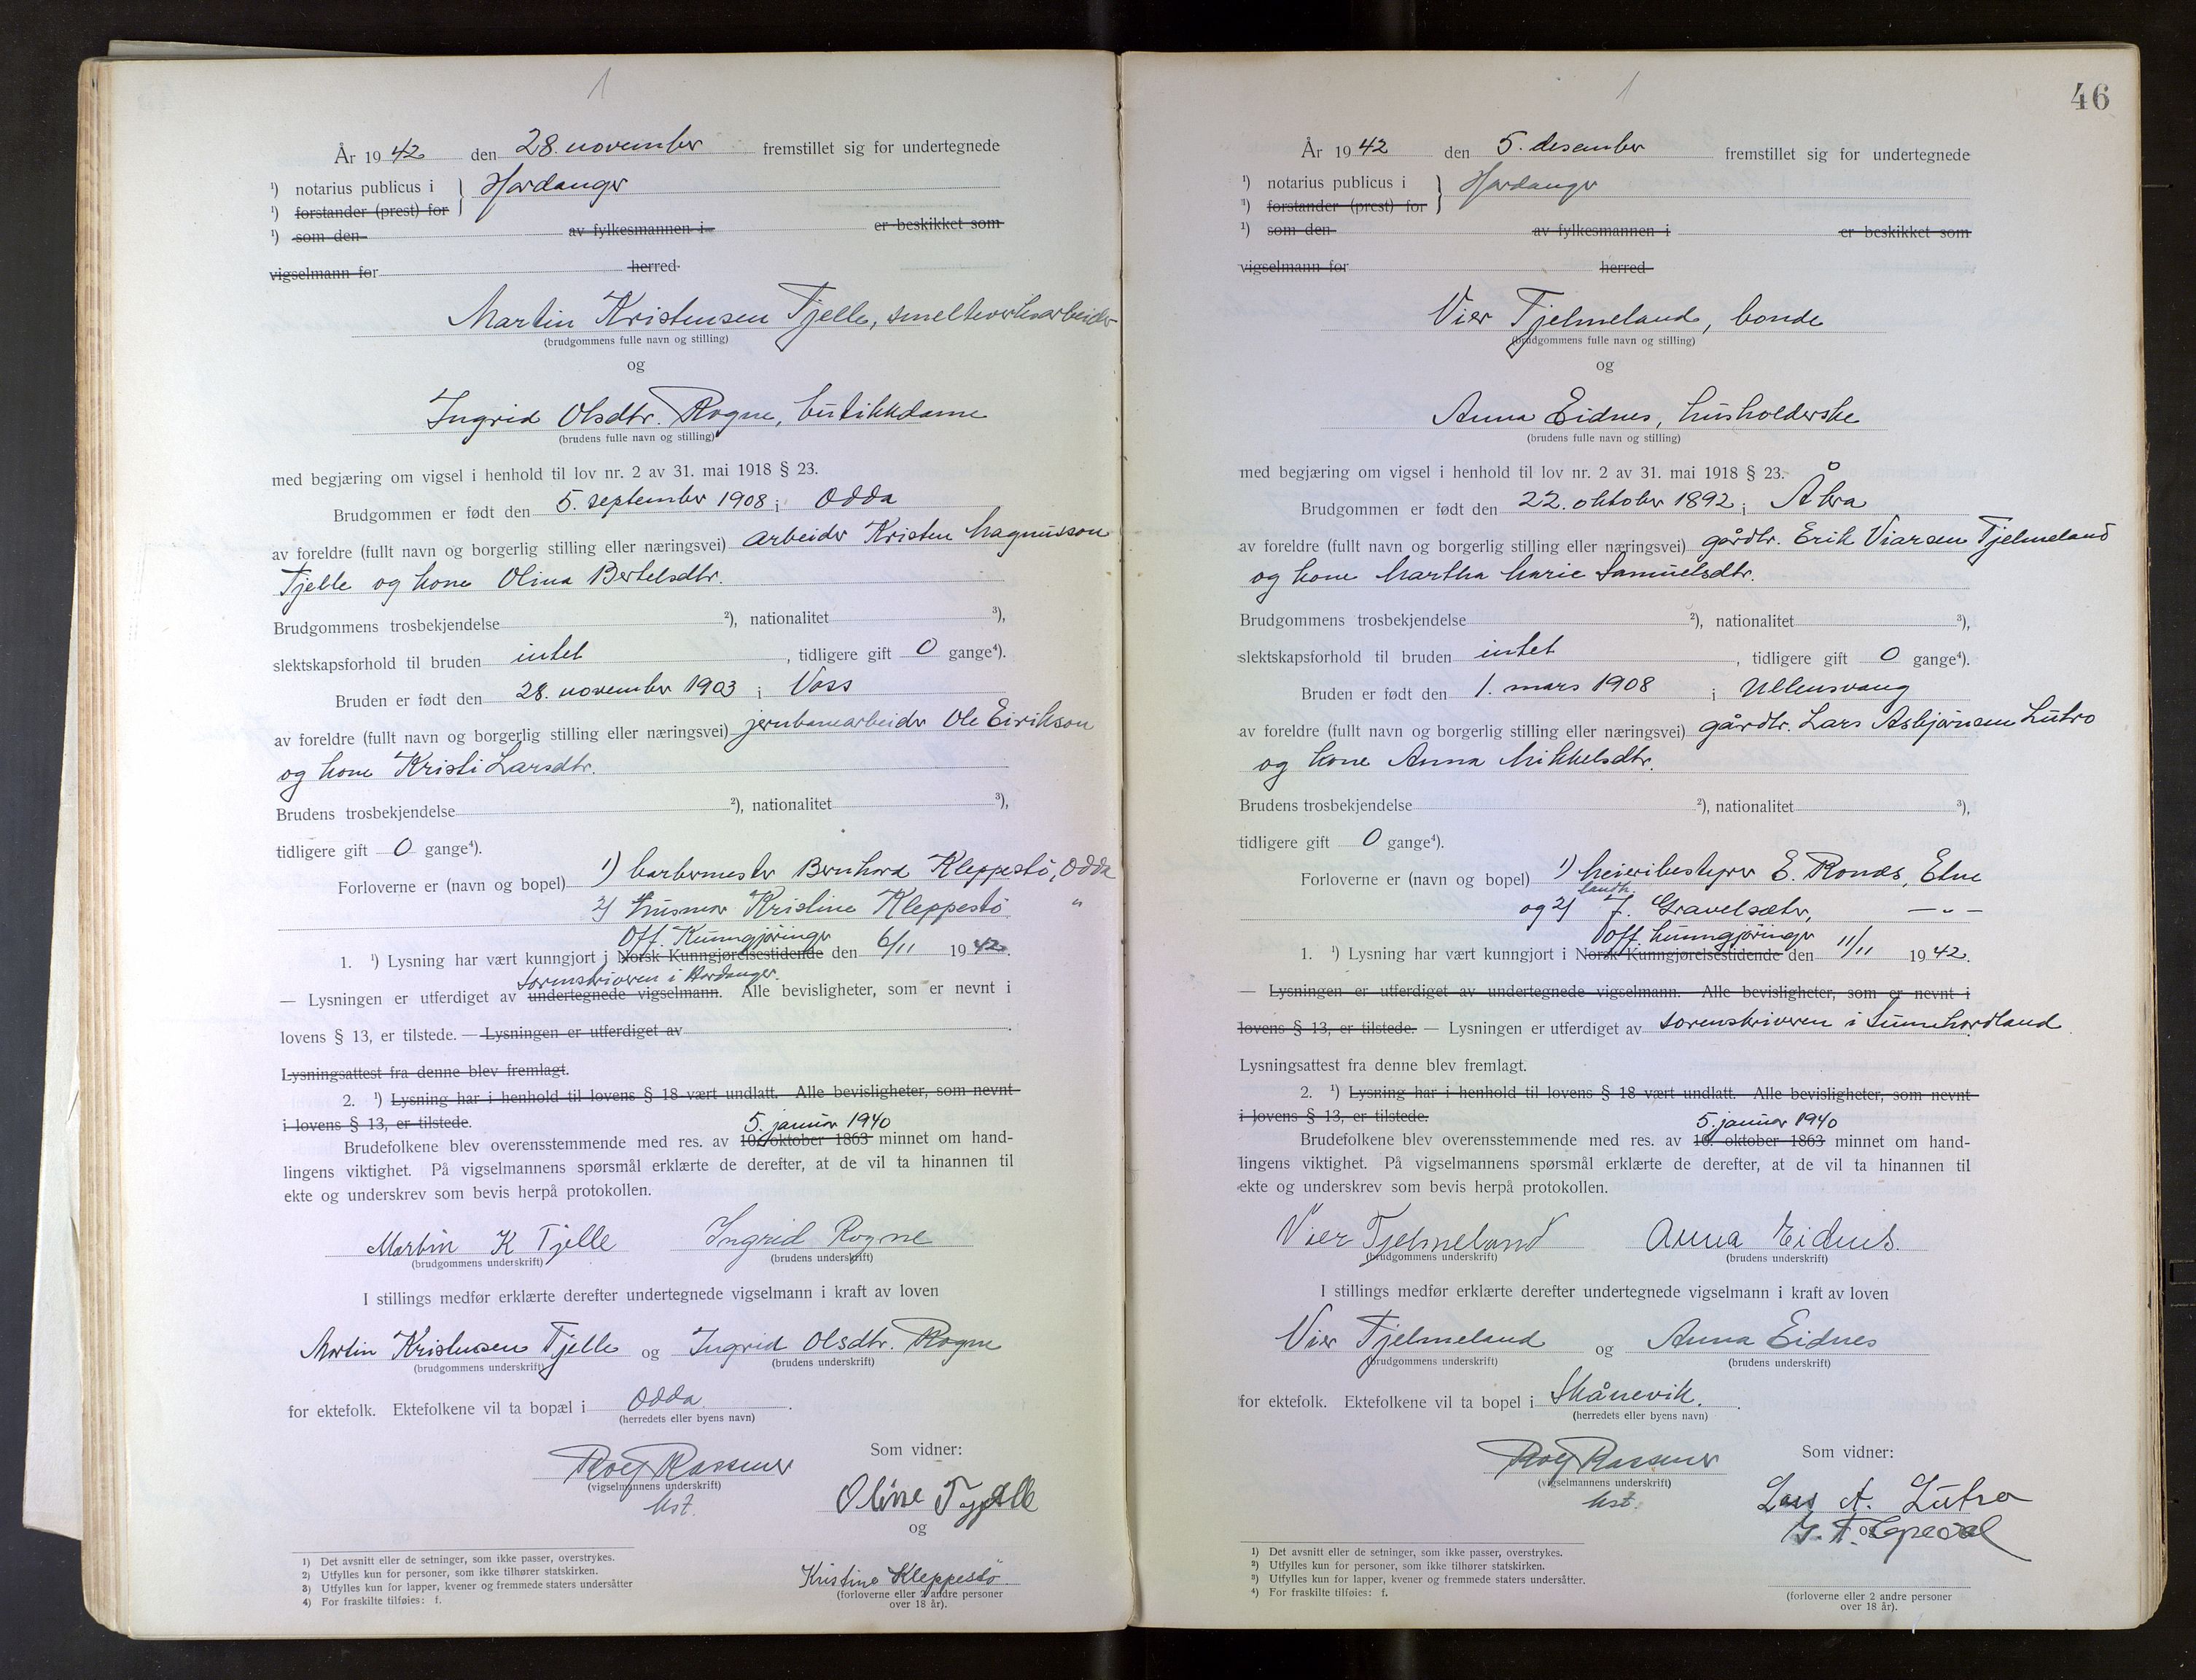 1
År 1942 den 28. november fremstillet sig for undertegnede
¹) notarius publicus i } Hardanger
¹) forstander (prest) for
¹) som den av fylkesmannen i er beskikket som
vigselmann for herred
Martin Kristensen Tjelle, smelteverksarbeider
(brudgommens fulle navn og stilling)
og
Ingrid Olsdtr. Rogne, butikkdame
(brudens fulle navn og stilling)
med begjæring om vigsel i henhold til lov nr. 2 av 31. mai 1918 § 23.
Brudgommen er født den 5. september 1908 i Odda
av foreldre (fullt navn og borgerlig stilling eller næringsvei) arbeider Kristen Magnusson
Tjelle og kone Olina Bertelsdtr.
Brudgommens trosbekjendelse ²), nationalitet ³),
slektskapsforhold til bruden intet, tidligere gift 0 gange⁴).
Bruden er født den 28. november 1903 i Voss
av foreldre (fullt navn og borgerlig stilling eller næringsvei) jernbanearbeider Ole Eirikson
og kone Kristi Larsdtr.
Brudens trosbekjendelse ²), nationalitet ³),
tidligere gift 0 gange⁴).
Forloverne er (navn og bopel) 1) barbermester Bernhard Kleppestø, Odda
2) husmor Kristine Kleppestø "
Off. Kunngjøringer
1. ¹) Lysning har vært kunngjort i Norsk Kunngjørelsestidende den 6/11 1942.
sorenskriveren i Hardanger.
— Lysningen er utferdiget av undertegnede vigselmann. Alle bevisligheter, som er nevnt i
lovens § 13, er tilstede. — Lysningen er utferdiget av .
Lysningsattest fra denne blev fremlagt.
2. ¹) Lysning har i henhold til lovens § 18 vært undlatt. Alle bevisligheter, som nevnt
i lovens § 13, er tilstede.
5. januar 1940
Brudefolkene blev overensstemmende med res. av 10. oktober 1863 minnet om hand-
lingens viktighet. På vigselmannens spørsmål erklærte de derefter, at de vil ta hinannen til
ekte og underskrev som bevis herpå protokollen.
Martin K Tjelle Ingrid Rogne
(brudgommens underskrift) (brudens underskrift)
I stillings medfør erklærte derefter undertegnede vigselmann i kraft av loven
Martin Kristensen Tjelle og Ingrid Olsdtr. Rogne
(brudgommens underskrift) (brudens underskrift)
for ektefolk. Ektefolkene vil ta bopæl i Odda.
(herredets eller byens navn)
Som vidner:
Rolf Rassmus
(vigselmannens underskrift)
kst.
Oline Tjelle
og
Kristine Kleppestø.
(forloverne eller 2 andre personer
over 18 år).
1) Det avsnitt eller de setninger, som ikke passer, overstrykes.
2) Utfylles kun for personer, som ikke tilhører statskirken.
3) Utfylles kun for lapper, kvener og fremmede staters undersåtter
4) For fraskilte tilføies: f.
1
46
År 1942 den 5. desember fremstillet sig for undertegnede
¹) notarius publicus i } Hardanger
¹) forstander (prest) for
¹) som den av fylkesmannen i er beskikket som
vigselmann for herred
Vier Tjelmeland, bonde
(brudgommens fulle navn og stilling)
og
Anna Eidnes, husholderske
(brudens fulle navn og stilling)
med begjæring om vigsel i henhold til lov nr. 2 av 31. mai 1918 § 23.
Brudgommen er født den 22. oktober 1892 i Åkra
av foreldre (fullt navn og borgerlig stilling eller næringsvei) gårdbr. Erik Viarsen Tjelmeland
og kone Martha Marie Samuelsdtr.
Brudgommens trosbekjendelse ²), nationalitet ³),
slektskapsforhold til bruden intet, tidligere gift 0 gange⁴).
Bruden er født den 1. mars 1908 i Ullensvang
av foreldre (fullt navn og borgerlig stilling eller næringsvei) gårdbr. Lars Asbjørnsen Lutro
og kone Anna Mikkelsdtr.
Brudens trosbekjendelse ²), nationalitet ³),
tidligere gift 0 gange⁴).
Forloverne er (navn og bopel) 1) meieribestyrer E. Etne
landh.
og 2) J. Gravelsæter, — " —
Off. kunngjøringer
1. ¹) Lysning har vært kunngjort i Norsk Kunngjørelsestidende den 11/11 1942.
— Lysningen er utferdiget av undertegnede vigselmann. Alle bevisligheter, som er nevnt i
lovens § 13, er tilstede. — Lysningen er utferdiget av sorenskriveren i Sunnhordland.
Lysningsattest fra denne blev fremlagt.
2. ¹) Lysning har i henhold til lovens § 18 vært undlatt. Alle bevisligheter, som nevnt
i lovens § 13, er tilstede.
5. januar 1940
Brudefolkene blev overensstemmende med res. av 10. oktober 1863 minnet om hand-
lingens viktighet. På vigselmannens spørsmål erklærte de derefter, at de vil ta hinannen til
ekte og underskrev som bevis herpå protokollen.
Vier Tjelmeland Anna Eidnes.
(brudgommens underskrift) (brudens underskrift)
I stillings medfør erklærte derefter undertegnede vigselmann i kraft av loven
Vier Tjelmeland og Anna Eidnes
(brudgommens underskrift) (brudens underskrift)
for ektefolk. Ektefolkene vil ta bopel i Skånevik.
(herredets eller byens navn)
Som vidner:
Rolf Rassmus
(vigselmannens underskrift)
kst.
Lars A. Lutro
og
(forloverne eller 2 andre personer
over 18 år).
1) Det avsnitt eller de setninger, som ikke passer, overstrykes.
2) Utfylles kun for personer, som ikke tilhører statskirken.
3) Utfylles kun for lapper, kvener og fremmede staters undersåtter.
4) For fraskilte tilføies: f.